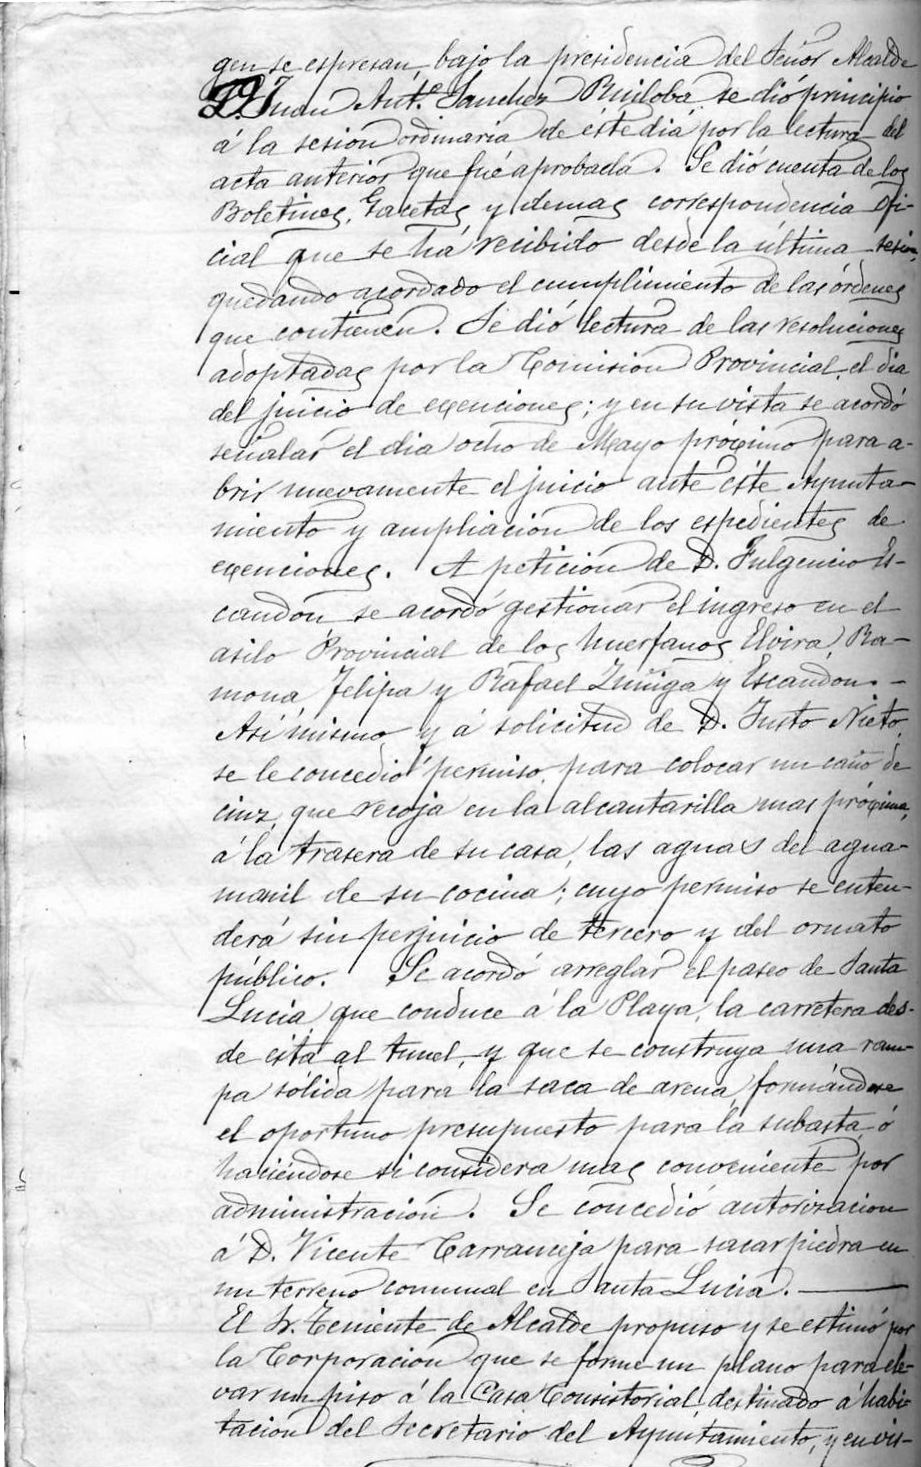 gen se espresan, bajo la presidencia del Señor Alcalde
D. Juan Ant.º Sanchez Ruiloba se dió principio
á la sesion ordinaria de este dia por la lectura del
acta anterior que fué aprobada. Se dió cuenta de los
Boletines, Gacetas y demas correspondencia ofi-
cial que se há recibido desde la última sesion,
quedando acordado el cumplimiento de las órdenes
que contienen. Se dió lectura de las resoluciones
adoptadas por la Comision Provincial el dia
del juicio de exenciones; y en su vista se acordó
señalar el dia ocho de Mayo próximo para a-
brir nuevamente el juicio ante éste Ayunta-
miento y ampliacion de los espedientes de
exenciones. A peticion de D. Fulgencio Es-
candon se acordó gestionar el ingreso en el
asilo Provincial de los huerfanos Elvira, Ra-
mona, Felipa y Rafael Zuñiga y Escandon. -
Asi mismo y á solicitud de D. Justo Nieto
se le concedió permiso para colocar un caño de
cinz que recoja en la alcantarilla mas próxima,
á la trasera de su casa, las aguas del agua-
manil de su cocina; cuyo permiso se enten-
derá sin perjuicio de tercero y del ornato
público. Se acordó arreglar el paseo de Santa
Lucia que conduce á la Playa, la carretera des-
de ésta al tunel, y que se construya una ram-
pa sólida para la saca de arena, formándose
el oportuno presupuesto para la subasta ó
haciéndose si considera mas conveniente por
administracion. Se concedió autorizacion
á D. Vicente Carranceja para sacar piedra en
un terreno comunal en Santa Lucia.
El Sr. Teniente de Alcalde propuso y se estimó por
la Corporacion que se forme un plano para ele-
var un piso á la Casa Consistorial destinado á habi-
tacion del Secretario del Ayuntamiento, y en vis-